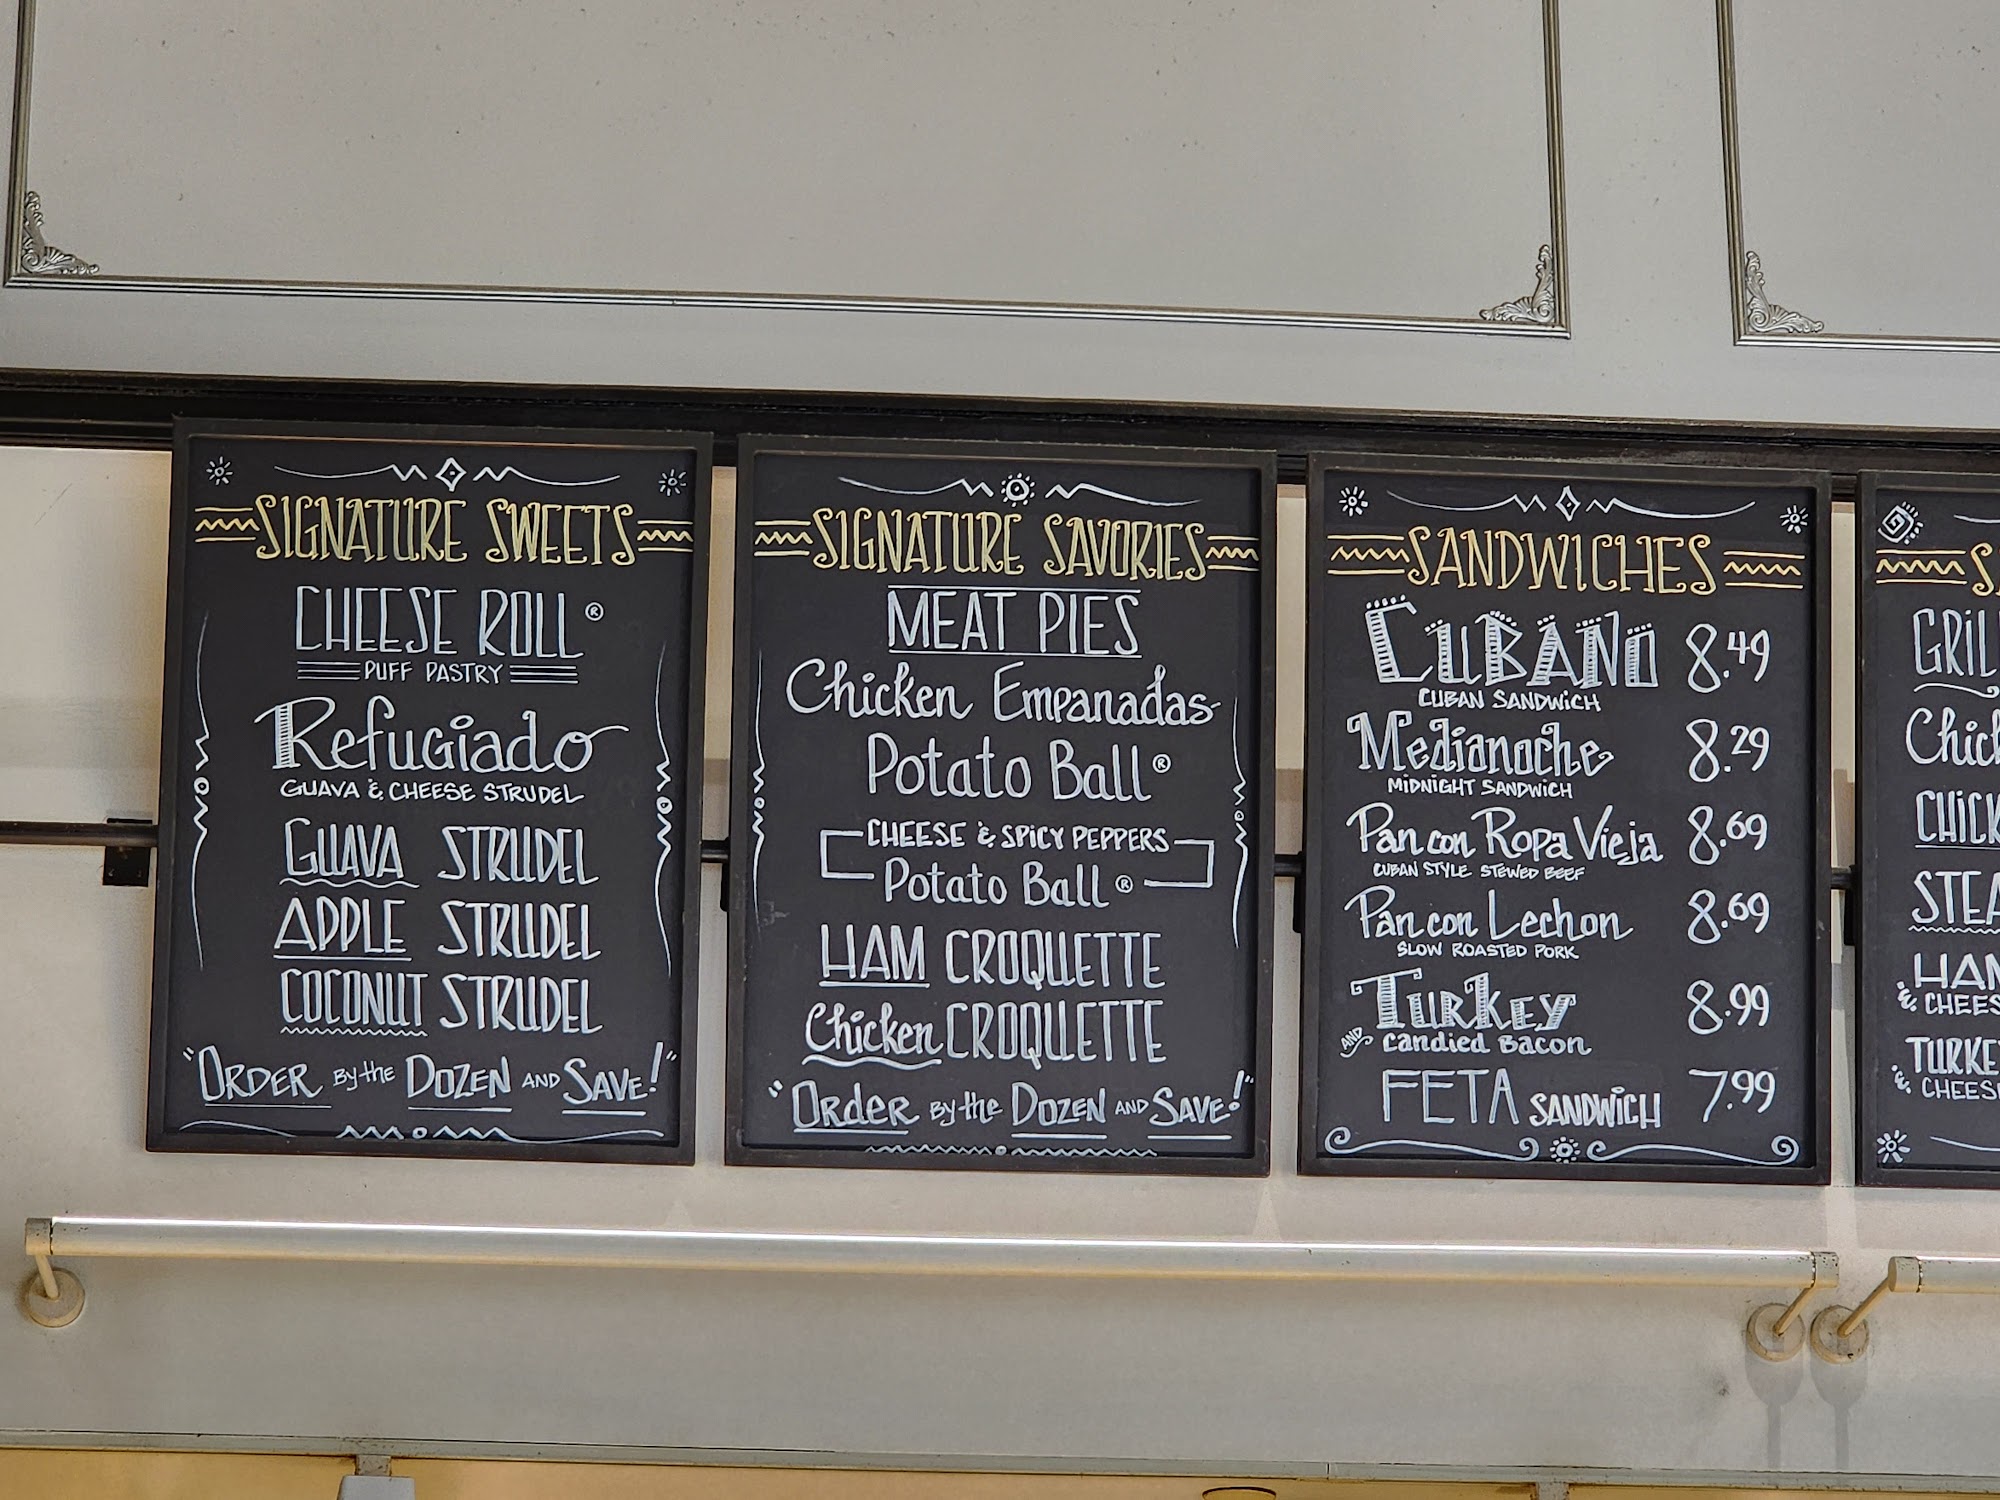 SIGNATURE SWEETS
CHEESE ROLL®
PUFF PASTRY
Refugiado
GUAVA & CHEESE STRUDEL
GUAVA STRUDEL
APPLE STRUDEL
COCONUT STRUDEL
"ORDER BY the DOZEN AND SAVE!"
SIGNATURE SAVORIES
MEAT PIES
Chicken Empanadas
Potato Ball®
CHEESE & SPICY PEPPERS
Potato Ball®
HAM CROQUETTE
Chicken CROQUETTE
"Order BY the DOZEN AND SAVE!"
SANDWICHES
CUBANO 8.49
CUBAN SANDWICH
Medianoche 8.29
MIDNIGHT SANDWICH
Pan con Ropa Vieja 8.69
CUBAN STYLE STEWED BEEF
Pan con Lechon 8.69
SLOW ROASTED PORK
TURKEY 8.99
AND Candied Bacon
FETA SANDWICH 7.99